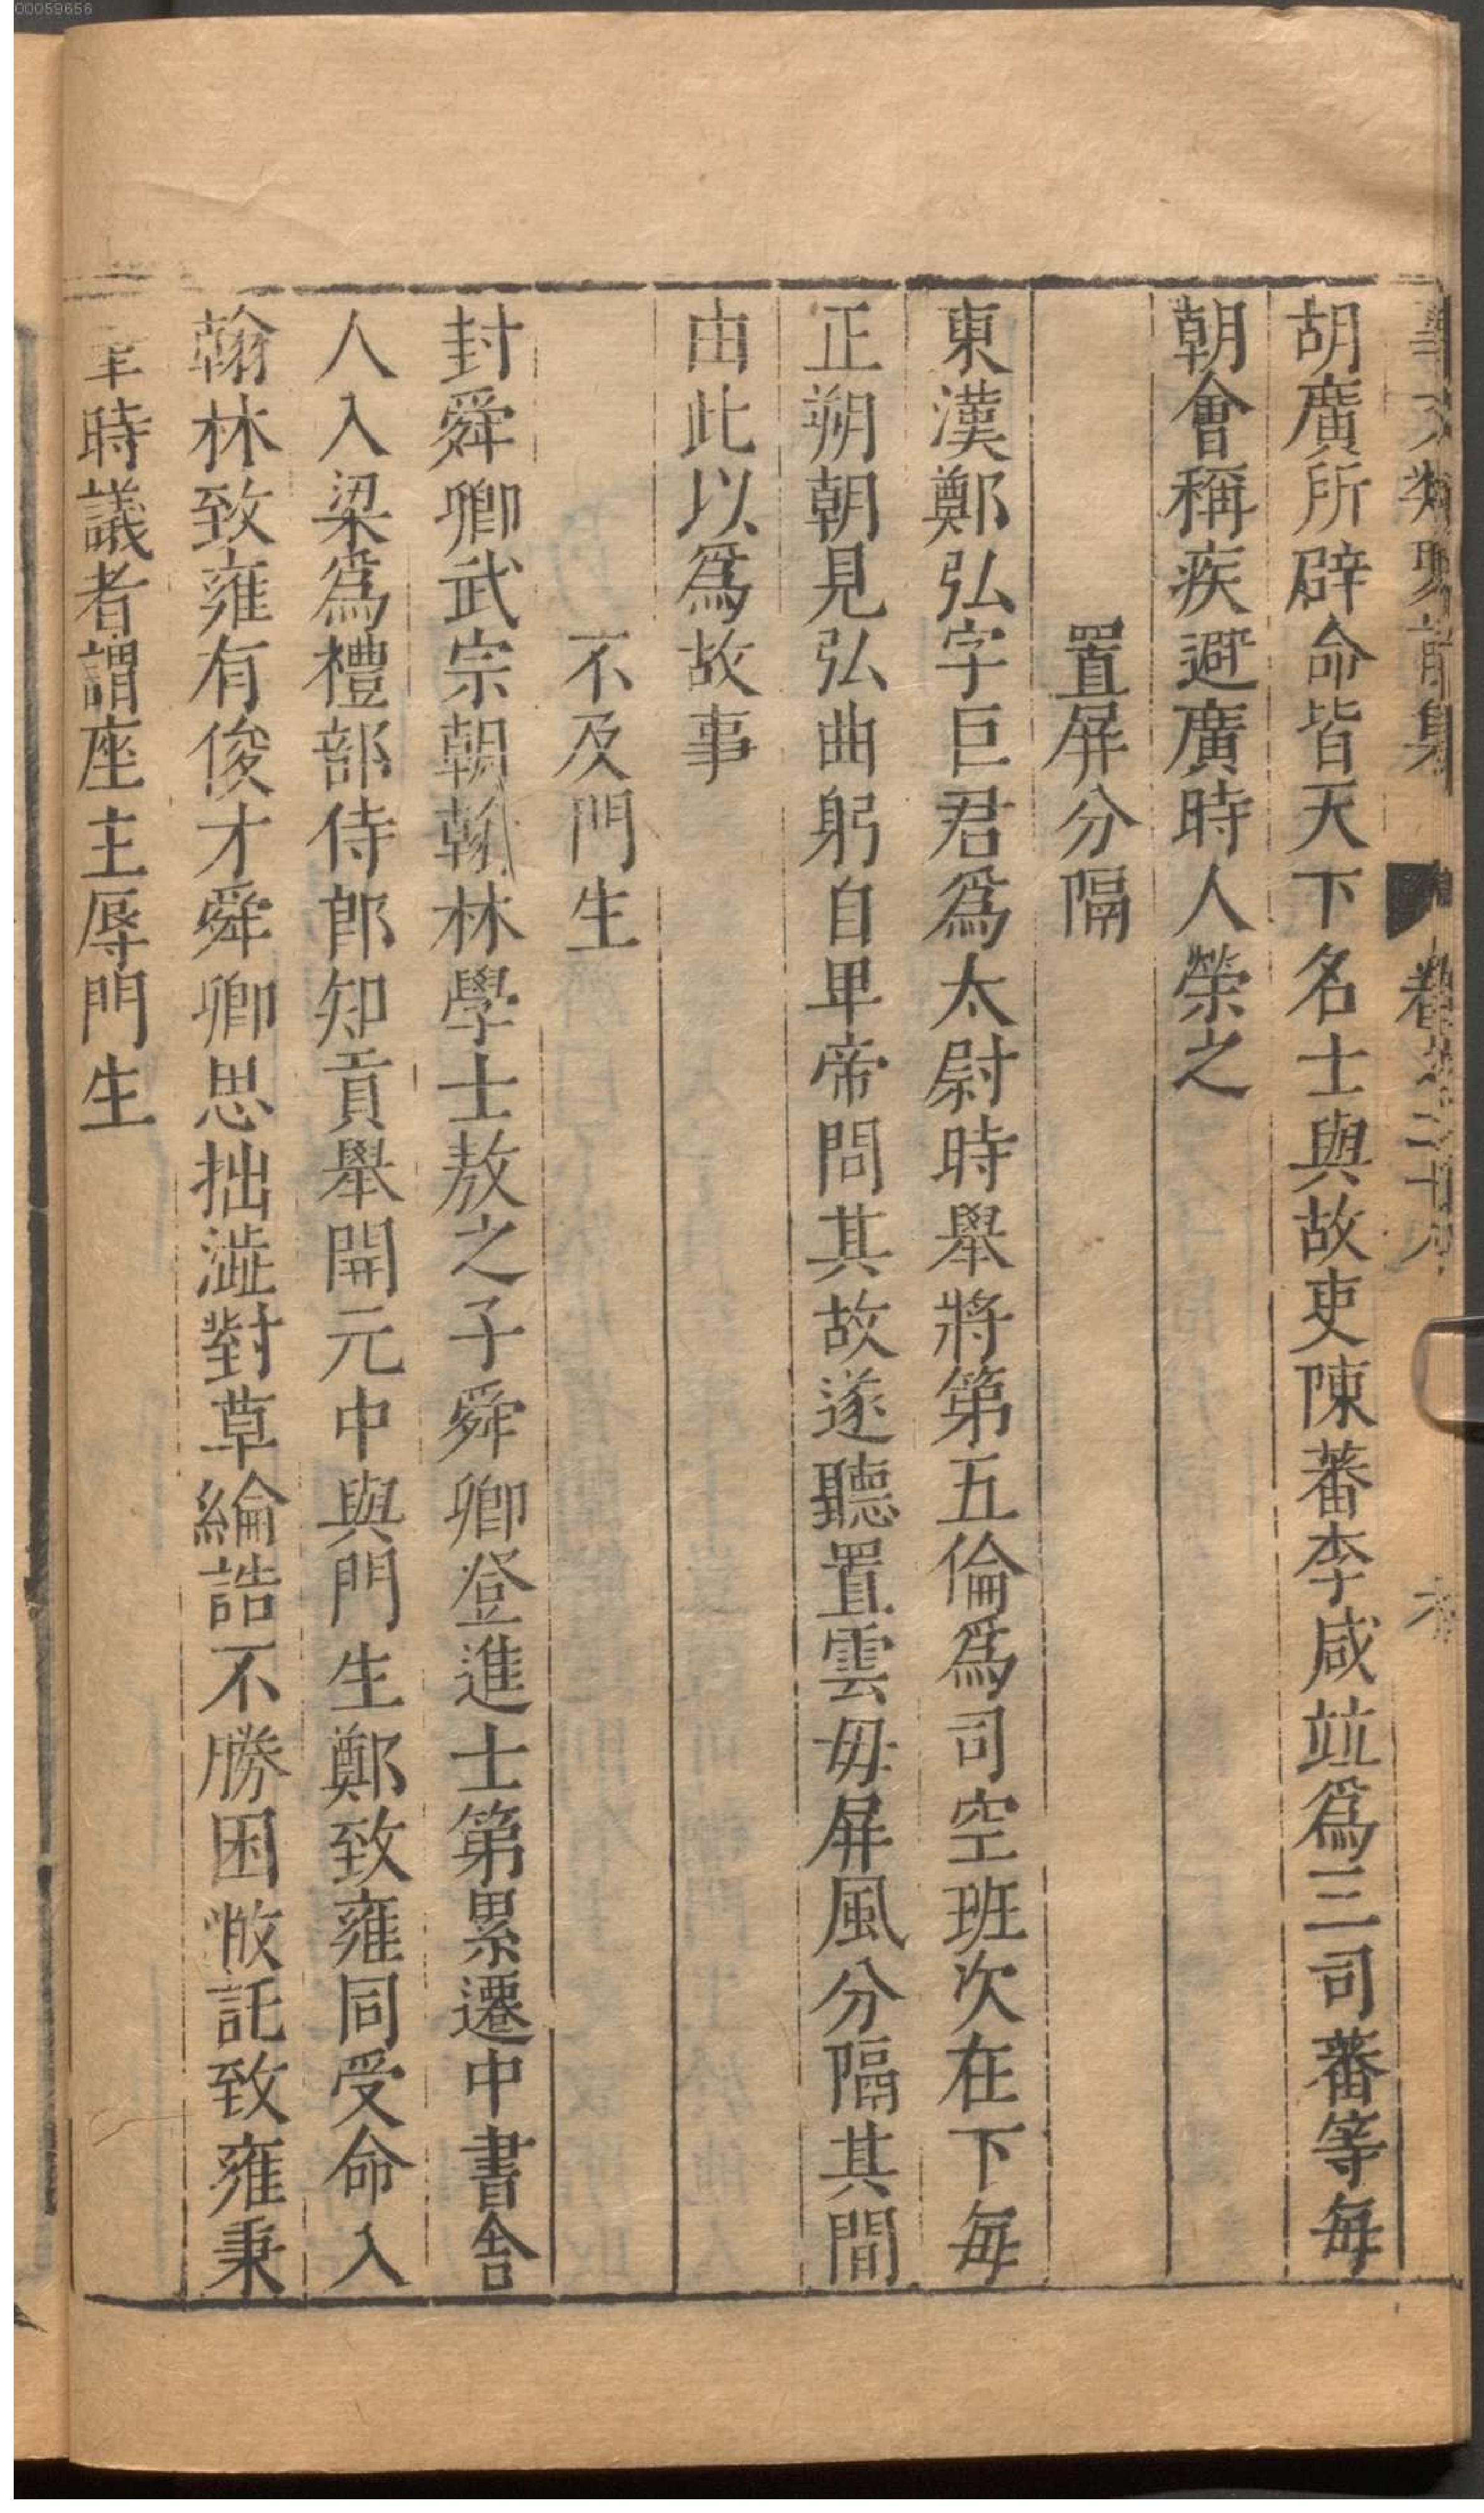 00059656
事文類聚前集 卷之二十九
胡廣所辟命皆天下名士與故吏陳蕃李咸竝爲三司蕃等每
朝會稱疾避廣時人榮之
置屏分隔
東漢鄭弘字巨君爲太尉時舉將第五倫爲司空班次在下每
正朔朝見弘曲躬自卑帝問其故遂聽置雲毋屏風分隔其間
由此以爲故事
不及門生
封舜卿武宗朝翰林學士敖之子舜卿登進士第累遷中書舍
人入梁爲禮部侍郎知貢舉開元中與門生鄭致雍同受命入
翰林致雍有俊才舜卿思拙澁對草綸誥不勝困敝託致雍秉
筆時議者謂座主辱門生